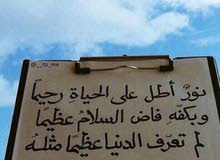 @_itz_me
نورٌ أطل على الحياةِ رحيماً
وبكفّه فاض السلامُ عظيماً
لم تعرف الدنيا عظيمًا مثلهُ